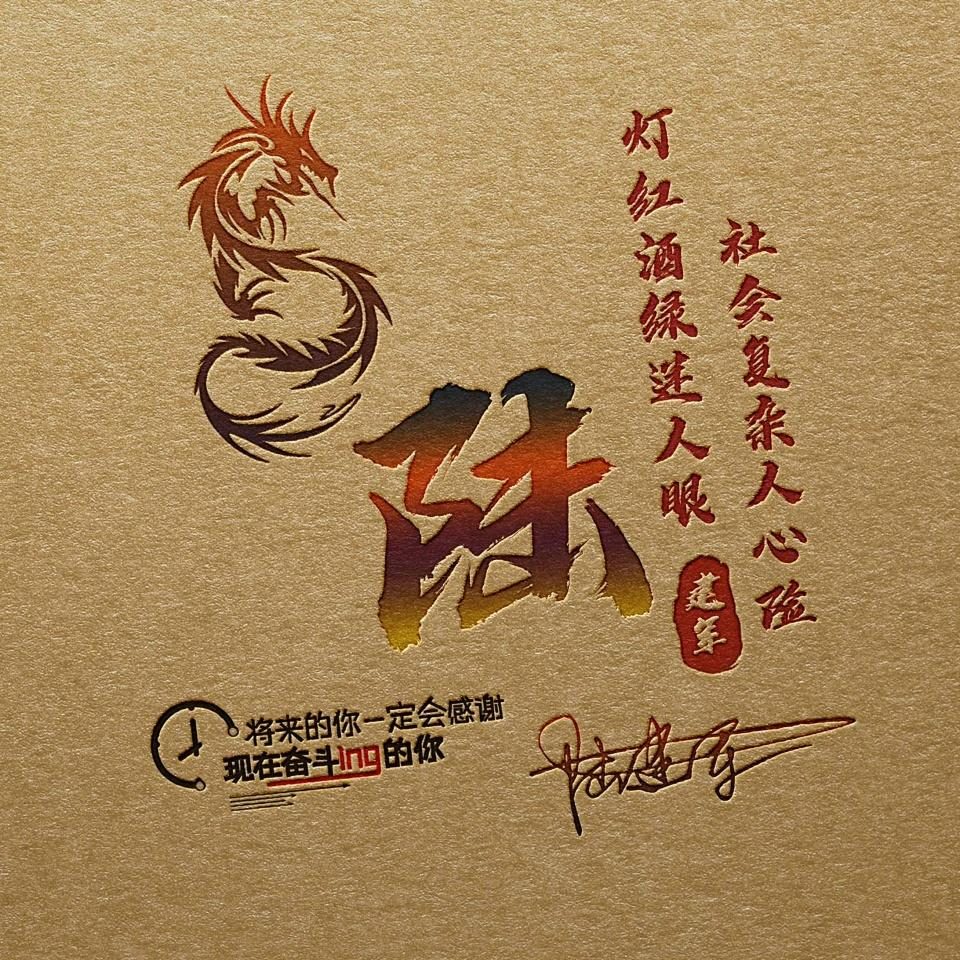 灯红酒绿迷人眼
社会复杂人心险
陆
建军
将来的你一定会感谢
现在奋斗ing的你
陆建军